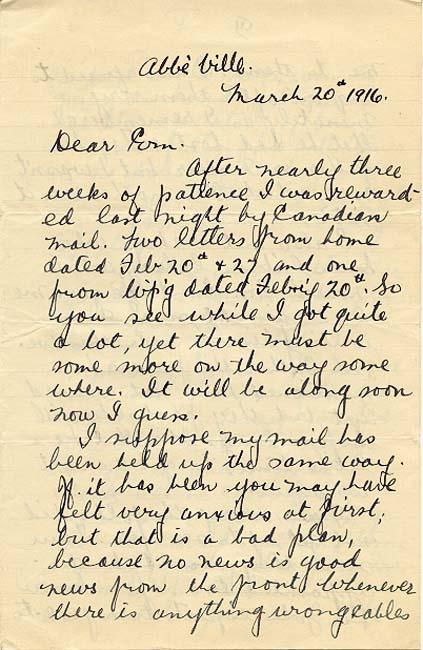 Abbè Ville.
March 20th 1916.
Dear Ern.
After nearly three
weeks of patience I was reward-
ed last night by Canadian
mail. Two letters from home
dated Feb 20th & 27 and one
from Wp'g dated Feb 20th. So
you see while I got quite
a lot, yet there must be
some more on the way some
where. It will be along soon
now I guess.
I suppose my mail has
been held up the same way.
If it has been you may have
felt very anxious at first;
but that is a bad plan,
because no news is good
news from the front. Whenever
there is anything wrong cables